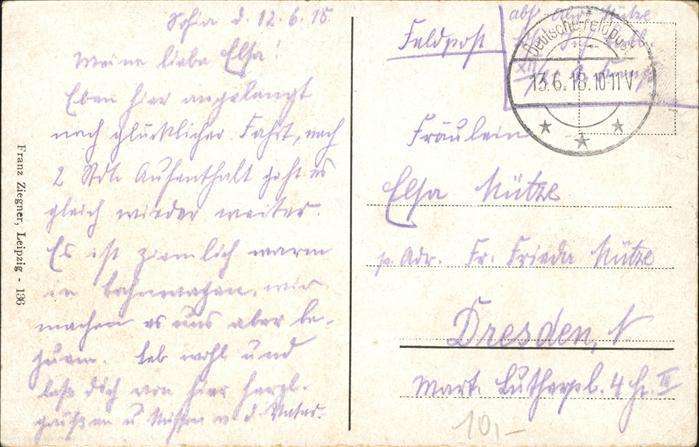 Sofia d. 12.6.18
Meine liebe Elsa!
Eben hier angelangt
nach glücklicher Fahrt, nach
2 Stdn Aufenthalt geht es
gleich wieder weiter.
Es ist ziemlich warm
im Bahnwagen, wir
machen es uns aber be-
quem. Leb wohl u und
laß Dich von hier herzl.
grüßen u küssen v. d. Vater.
Franz Ziegner, Leipzig - 136
Feldpost
abs.
Deutsche Feldpost
13.6.18.10-11V.
Fräulein
Elsa Nütze
p. Adr. Fr. Frieda Nütze
Dresden, N
Mart. Lutherpl. 4 Hr. III
10,-